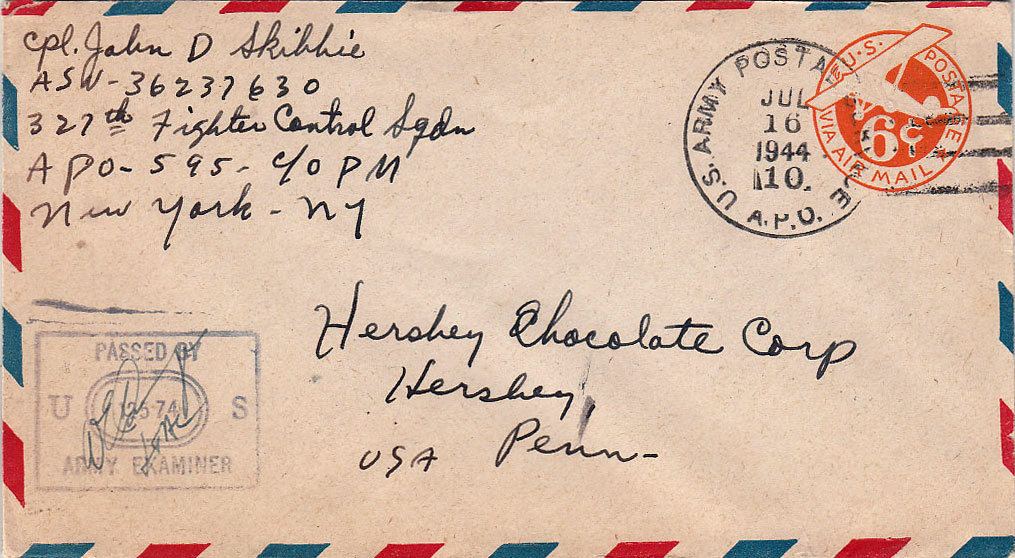 cpl. John D Skibbie
ASN-36237630
327th Fighter Control Sqdn
APO-595-C/O PM
New York-NY
U.S. ARMY POSTAL
A.P.O.
JUL
16
1944
10
U.S. POSTAGE
6¢
VIA AIR MAIL
Hershey Chocolate Corp
Hershey,
Penn-
USA
PASSED BY
U S
ARMY EXAMINER